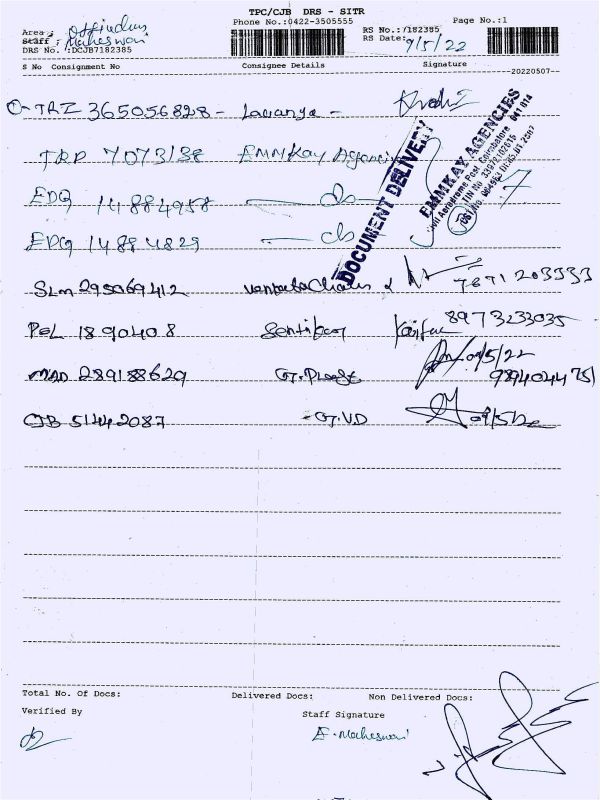 TPC/CJB DRS - SITR
Phone No.:0422-3505555
Page No.:1
Area :
Staff : Maheswari
DRS No. :DCJB7182385
RS No.:7182385
RS Date: 9/5/22
S No Consignment No Consignee Details Signature
20220507
TRZ 365056828 - Lavanya -
TRP 7073138 EMMKay Agencies
EDQ 14884958 - do
EDQ 14884829 - do
SLM 295069412 7871203333
PEL 1890408 8973233035
MAD 289188629 09/5/22
CJB 51442087 - G.VD 09/5/22
DOCUMENT DELIVERY
EMMKAY AGENCIES
Civil Aerodrome Post, Coimbatore 641 014
Total No. Of Docs: Delivered Docs: Non Delivered Docs:
Verified By Staff Signature
E. Maheswari